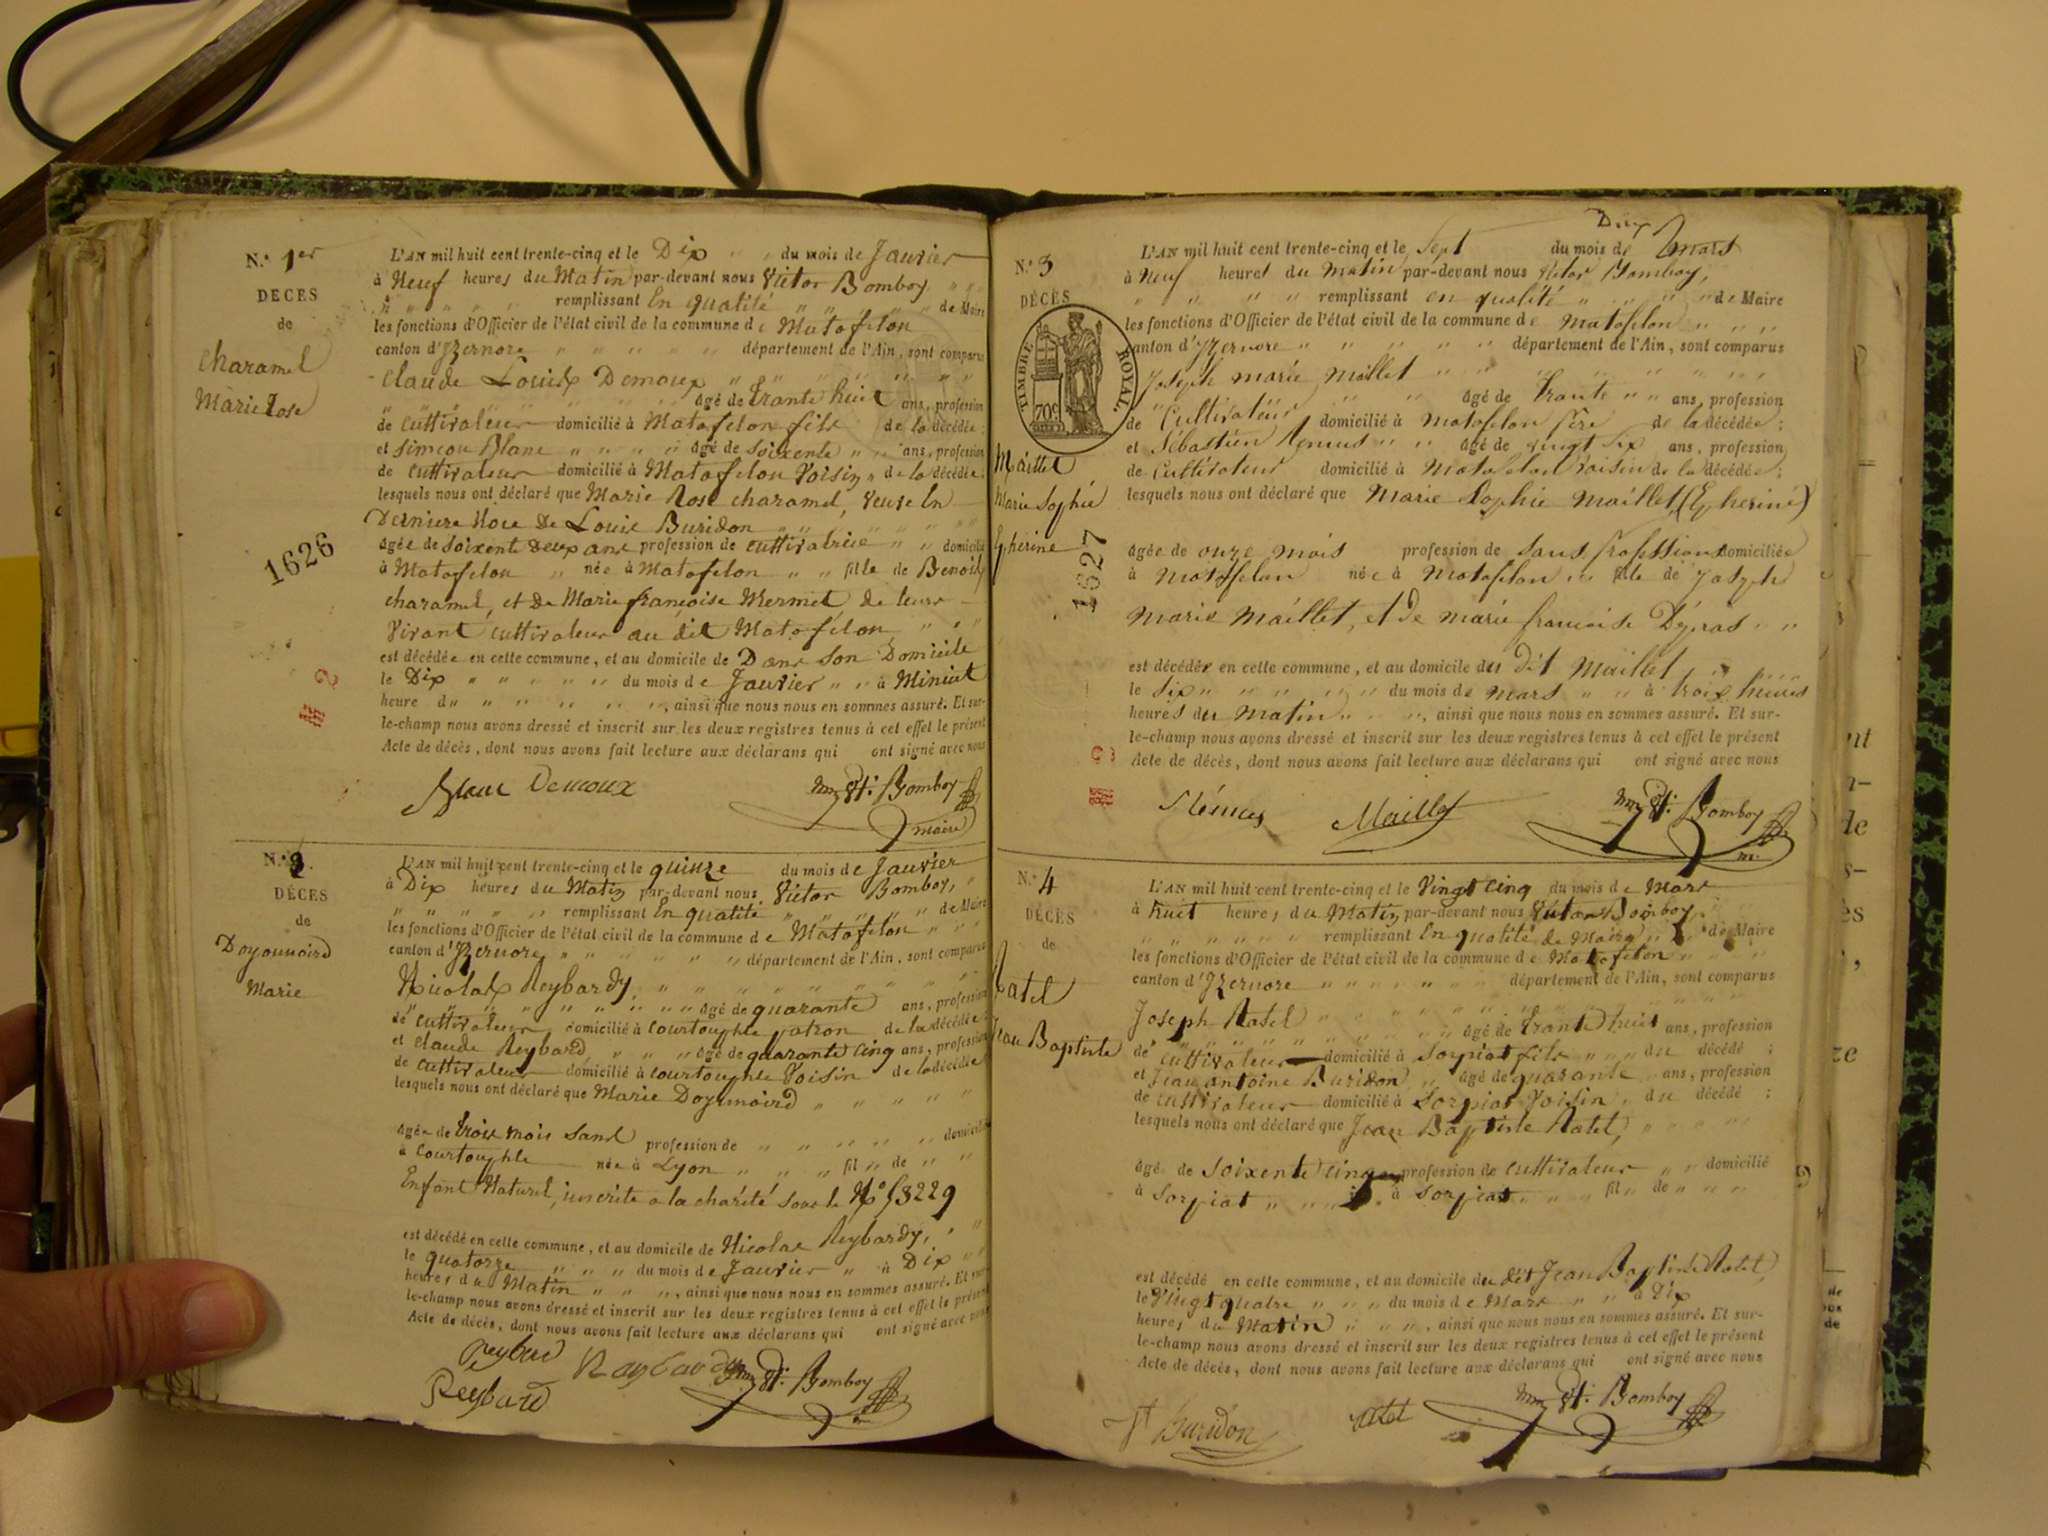 N.° 1er
DÉCES
de
Charamel
Marie Rose
1626
L'AN mil huit cent trente-cinq et le Dix " " du mois de Janvier
à Neuf heures du Matin par-devant nous Victor Bomboy " "
" " " " " remplissant En qualité " " " " de Maire
les fonctions d'Officier de l'état civil de la commune de Matafelon
canton d'Izernore " " " " " département de l'Ain, sont comparus
Claude Louis Demoux " " " " " "
" " " " " âgé de trante huit ans, profession
de Cultivateur domicilié à Matafelon fils de la décédée;
et Simeon Blanc " " " " âgé de Soixente " " ans, profession
de Cultivateur domicilié à Matafelon Voisin " de la décédée;
lesquels nous ont déclaré que Marie Rose charamel, veuve En
Derniere Noce De Louis Buridon " " " " "
âgée de Soixente Deux ans profession de Cultivatrice " " domicilié
à Matafelon " née à Matafelon " " fille de Benoit
charamel, et De Marie françoise Mermet de leurs
Vivant cultivateur au dit Matafelon " " "
est décédée en cette commune, et au domicile de Dans Son Domicile
le Dix " " " " " du mois de Janvier " " à Minuit
heure d" " " " " " ", ainsi que nous nous en sommes assuré. Et sur-
le-champ nous avons dressé et inscrit sur les deux registres tenus à cet effet le présent
Acte de décès, dont nous avons fait lecture aux déclarans qui ont signé avec nous
Blanc Demoux Bomboy
maire
N.° 2
DÉCES
de
Doyounaird
Marie
L'AN mil huit cent trente-cinq et le quinze du mois de Janvier
à Dix heures du Matin par-devant nous Victor Bomboy, "
" " " " " remplissant En qualité " " " " de Maire
les fonctions d'Officier de l'état civil de la commune de Matafelon " " "
canton d'Izernore " " " " " " département de l'Ain, sont comparus
Nicolas Reybard, " " " " " " "
" " " " " " âgé de quarante ans, profession
de cultivateur, domicilié à courtouphle patron de la décédée;
et claude Reybard " " " âgé de quarante cinq ans, profession
de cultivateur domicilié à courtouphle Voisin de la décédée
lesquels nous ont déclaré que Marie " " " " "
âgée de trois mois Sans profession de " " " " " " domicilié
à Courtouphle née à Lyon " " " " fil " de " "
Enfant Naturel, inscrite a la charité sous le N°
est décédé en cette commune, et au domicile de Nicolas Reybard, " "
le quatorze " " " " du mois de Janvier " à Dix "
heures du Matin " " ", ainsi que nous nous en sommes assuré. Et sur-
le-champ nous avons dressé et inscrit sur les deux registres tenus à cet effet le présent
Acte de décès, dont nous avons fait lecture aux déclarans qui ont signé avec nous
Reybard Bomboy
Reybard
N.° 3
DÉCÈS
TIMBRE ROYAL.
70c
Maillet
Marie Sophie
Epherine
1627
L'AN mil huit cent trente-cinq et le Sept du mois de mars
à Neuf heures du matin par-devant nous Victor Bomboy,
" " " " remplissant en qualité " " " " de Maire
les fonctions d'Officier de l'état civil de la commune de Matafelon " " "
canton d'Izernore " " " " " département de l'Ain, sont comparus
Joseph marie maillet " " " " " " "
" " " " âgé de trante " " ans, profession
de Cultivateur domicilié à matafelon père de la décédée;
et Sébastien " " âgé de vingt Six ans, profession
de cultivateur domicilié à matafelon voisin de la décédée;
lesquels nous ont déclaré que Marie Sophie maillet, (Epherine)
âgée de onze mois profession de Sans profession domiciliée
à matafelon née à Matafelon " " fille de Joseph
marie maillet, et de marie francoise " "
est décédée en cette commune, et au domicile du dit Maillet
le six " " " " " du mois de mars " " à trois heures
heures du matin " " " ", ainsi que nous nous en sommes assuré. Et sur-
le-champ nous avons dressé et inscrit sur les deux registres tenus à cet effet le présent
Acte de décès, dont nous avons fait lecture aux déclarans qui ont signé avec nous
Maillet Bomboy
m.
N.° 4
DÉCÈS
de
Ratel
Jean Baptiste
L'AN mil huit cent trente-cinq et le Vingt cinq du mois de Mars
à huit heures du Matin par-devant nous Victor Bomboy
" " " " " " remplissant En qualité de Maire " " de Maire
les fonctions d'Officier de l'état civil de la commune de Matafelon " " "
canton d'Izernore " " " " " " département de l'Ain, sont comparus
Joseph Ratel " " " " " " "
" " " " " " âgé de trante huit ans, profession
de cultivateur domicilié à Sorpiat fils " " " du décédé;
et Jean antoine Buridon " âgé de quarante " ans, profession
de cultivateur domicilié à Sorpiat Voisin, du décédé;
lesquels nous ont déclaré que Jean Baptiste Ratel, " " "
âgé de Soixente cinq profession de cultivateur " " domicilié
à Sorpiat " " " à Sorpiat " " " fil " de " " "
est décédé en cette commune, et au domicile du dit Jean Baptiste Ratel,
le Vingt quatre " " " du mois de Mars " " à Dix
heures du Matin " " ", ainsi que nous nous en sommes assuré. Et sur-
le-champ nous avons dressé et inscrit sur les deux registres tenus à cet effet le présent
Acte de décès, dont nous avons fait lecture aux déclarans qui ont signé avec nous
Buridon Ratel Bomboy